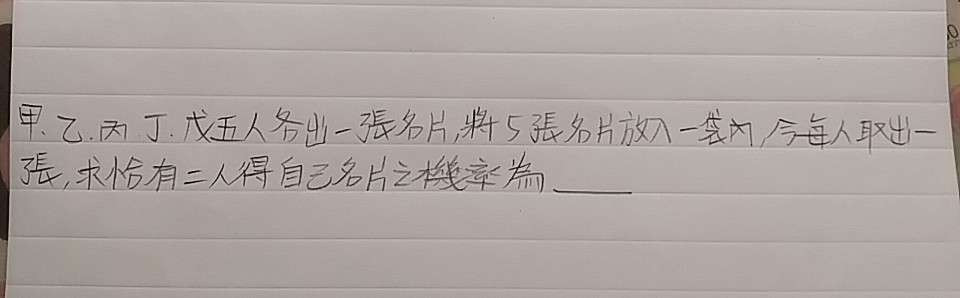 甲.乙.丙.丁.戊五人各出一張名片,將5張名片放入一袋內,今每人取出一
張,求恰有二人得自己名片之機率為____